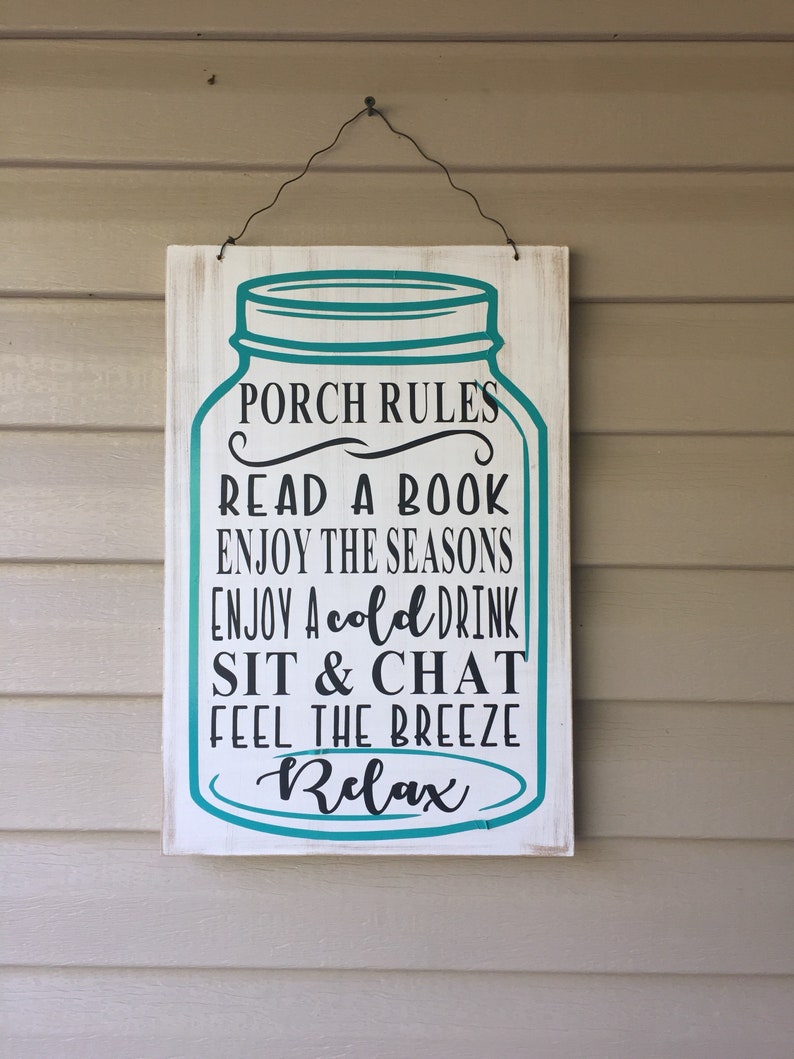 PORCH RULES
READ A BOOK
ENJOY THE SEASONS
ENJOY A cold DRINK
SIT & CHAT
FEEL THE BREEZE
Relax